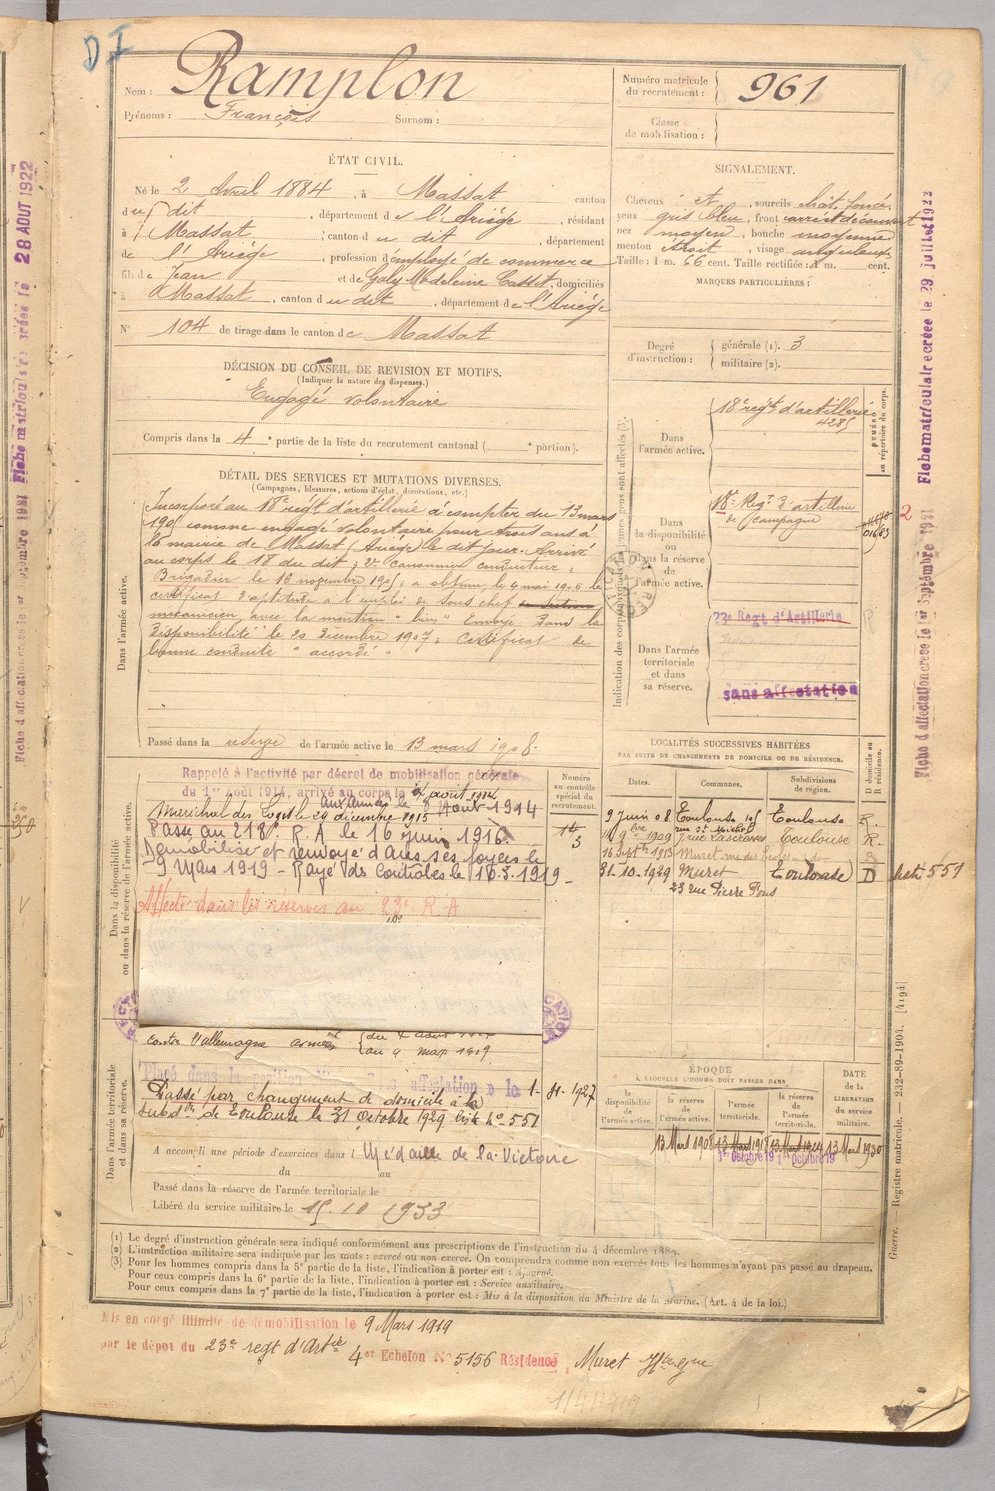 D I
Nom : Ramplon
Prénoms : François Surnom :
Numéro matricule du recrutement : 961
Classe de mobilisation :
ÉTAT CIVIL.
Né le 2 Avril 1884, à Massat canton
du dit, département de l'Ariège, résidant
à Massat ; canton du dit, département
de l'Ariège, profession d'employé de commerce
fils de Jean et de Galy Madeleine Cassit, domiciliés
à Massat, canton du dit, département de l'Ariège
N° 104 de tirage dans le canton de Massat
SIGNALEMENT.
Cheveux et sourcils chât. foncé
yeux gris bleu, front carré et découvert
nez moyen, bouche moyenne
menton étroit, visage anguleux
Taille : 1 m. 66 cent. Taille rectifiée : 1 m. cent.
MARQUES PARTICULIÈRES :
Degré d'instruction : générale (1). 3
militaire (2).
DÉCISION DU CONSEIL DE REVISION ET MOTIFS.
(Indiquer la nature des dispenses.)
Engagé volontaire
Compris dans la 4e partie de la liste du recrutement cantonal ( e portion).
DÉTAIL DES SERVICES ET MUTATIONS DIVERSES.
(Campagnes, blessures, actions d'éclat, décorations, etc.)
Dans l'armée active.
Incorporé au 18e régt d'artillerie à compter du 13 mars
1905 comme engagé volontaire pour trois ans à
la mairie de Massat (Ariège) le dit jour. Arrivé
au corps le 18 du dit ; 2e canonnier conducteur ;
Brigadier le 16 novembre 1905 ; a obtenu le 4 mai 1906 le
certificat d'aptitude à l'emploi de sous chef
mécanicien avec la mention "bien" Envoyé dans la
disponibilité le 20 décembre 1907 ; Certificat de
bonne conduite "accordé"
Passé dans la réserve de l'armée active le 13 mars 1908.
Indication des corps auxquels les jeunes gens sont affectés (3).
Dans l'armée active.
18e régt d'artillerie
4285
NUMÉRO au répertoire du corps.
Dans la disponibilité ou dans la réserve de l'armée active.
18e Regt d'artillerie
de campagne
01683
2
23e Regt d'Artillerie
Dans l'armée territoriale et dans sa réserve.
sans affectation
Dans la disponibilité ou dans la réserve de l'armée active.
Rappelé à l'activité par décret de mobilisation générale
du 1er août 1914, arrivé au corps le
aux armées le 8 Août 1914
Maréchal des Logis le 29 décembre 1915
Passé au 218e R. A le 16 juin 1916
Démobilisé et renvoyé dans ses foyers le
9 Mars 1919 - Rayé des Contrôles le 16.3.1919
Affecté dans les réserves au 23e R A
Numéro au contrôle spécial du recrutement.
LOCALITÉS SUCCESSIVES HABITÉES
PAR SUITE DE CHANGEMENTS DE DOMICILE OU DE RÉSIDENCE.
Dates. Communes. Subdivisions de région. D domicile ou R résidence.
9 Juin 08 Toulouse Toulouse R.
rue St Michel
9bre 1909 Toulouse R.
16 Septbre 1913 Muret rue des
31-10-1929 Muret Toulouse D liste 551
23 rue Pierre Fons
Dans l'armée territoriale et dans sa réserve.
contre l'allemagne armées du 2 août
au 9 mars 1919
Placé dans la position dite Sans affectation le 1-4-1927
Passé par changement de domicile à la
subd. de Toulouse le 31 octobre 1929 liste N° 551
A accompli une période d'exercices dans Médaille de la Victoire
du au
Passé dans la réserve de l'armée territoriale le
Libéré du service militaire le 15.10 1933
ÉPOQUE
À LAQUELLE L'HOMME DOIT PASSER DANS
la disponibilité de l'armée active. la réserve de l'armée active. l'armée territoriale. la réserve de l'armée territoriale.
DATE de la LIBÉRATION du service militaire.
13 Mars 1908 13 Mars 1918 13 Mars 1924 13 Mars 1930
1er Octobre 19 1er Octobre 19
(1) Le degré d'instruction générale sera indiqué conformément aux prescriptions de l'instruction du 4 décembre 1889.
(2) L'instruction militaire sera indiquée par les mots : exercé ou non exercé. On comprendra comme non exercés tous les hommes n'ayant pas passé au drapeau.
(3) Pour les hommes compris dans la 5e partie de la liste, l'indication à porter est : Ajourné.
Pour ceux compris dans la 6e partie de la liste, l'indication à porter est : Service auxiliaire.
Pour ceux compris dans la 7e partie de la liste, l'indication à porter est : Mis à la disposition du Ministre de la Marine. (Art. 4 de la loi.)
Mis en congé illimité de démobilisation le 9 Mars 1919
par le dépot du 23e regt d'Artie 4er Echelon N° 5156 Résidence Muret Hte Gne
1/4/1919
Guerre. — Registre matricule. — 232-89-1904. [4194]
Fiche d'affectation créée le 1er Septembre 1921 Fiche matriculaire créée le 29 juillet 1922
Fiche d'affectation créée le 1er Septembre 1921 Fiche matriculaire créée le 28 AOUT 1922